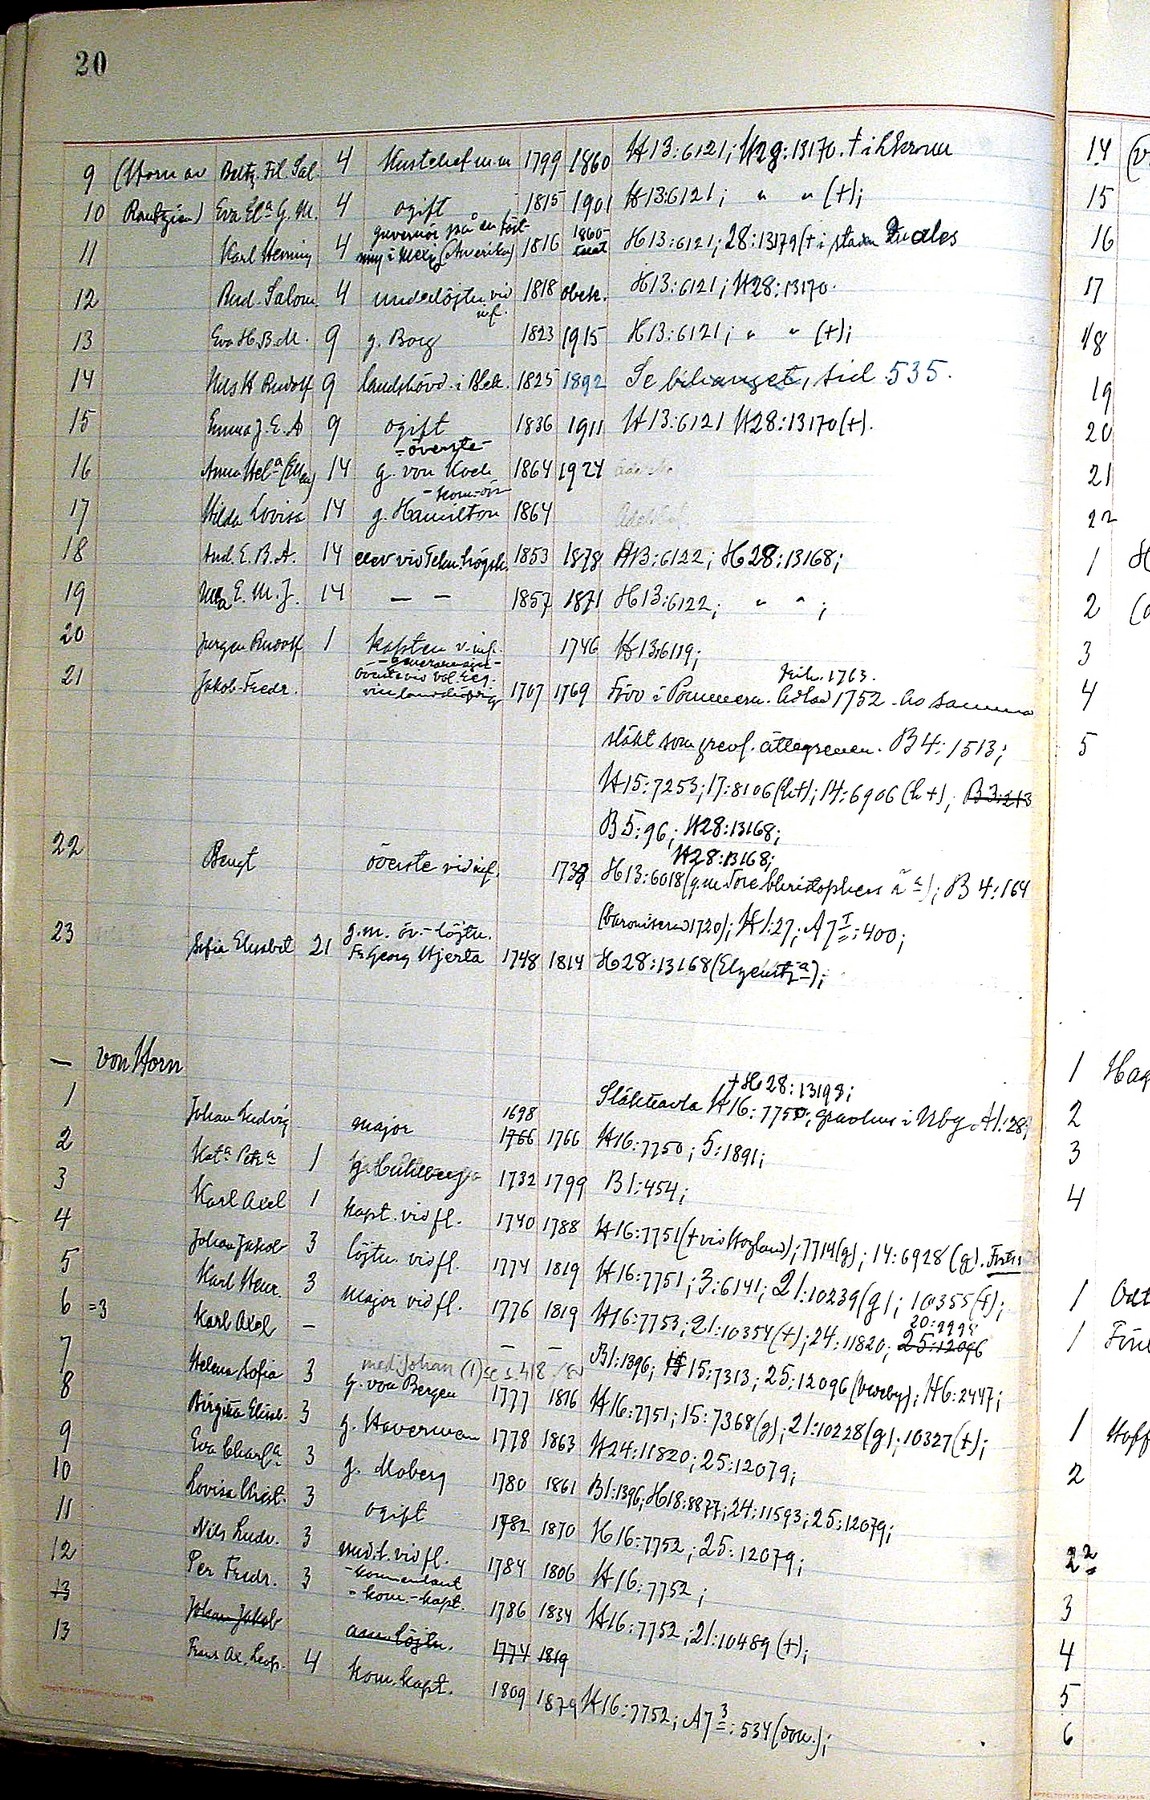 20
9 (Horn av Baltz. Fil. Sal. 4 Kustchef m.m 1799 1860 H13:6121; H28:13170. † i Lkrona
10 Rantzien) Eva El:a G. M. 4 ogift 1815 1901 H13:6121; " " (+);
guvernör på en fäst-
11 Karl Henning 4 ning i Mexiko (Amerika) 1816 1860-talet H13:6121; 28:13179 († i staden
12 Rud. Salom 4 underlöjtn. vid inf. 1818 obek. H13:6121; H28:13170.
13 Eva H.B.M. 9 g. Borg 1823 1915 H13:6121; " " (+);
14 Nils H Rudolf 9 landshövd. i Blek. 1825 1892 Se bihanget, sid 535.
15 Emma J. E. A 9 ogift 1836 1911 H13:6121 H28:13170(+).
-överste-
16 Anna Hel:a (Ellen) 14 g. von Koch 1864 1924
17 Hilda Lovisa 14 g. Hamilton 1864
18 And. E. B. A. 14 elev vid Tekn. högsk. 1853 1878 H13:6122; H28:13168;
19 E. M. J. 14 — — 1857 1871 H13:6122; " " ;
20 Jurgen Rudolf 1 kapten v. inf. 1746 H13:6119;
21 Jakob Fredr. 1707 1769 Född i Pommern. Adlad 1752. Av samma
frih. 1763.
släkt som grevl. ättegrenen. B4:1513;
H15:7253; 17:8106 (h+); 14:6906 (h+); B3:213
B5:96; H28:13168;
H28:13168;
22 Bengt överste vid inf. 1738 H13:6018 (g.m Tore Christophers ); B4:164
(baroniserad 1720); H1:27; A7 I:400;
g.m. öv.-löjtn.
23 Sofia Elisabet 21 Fr. Georg Hjerta 1748 1814 H28:13168
— von Horn
+ H28:13198;
1 Släkttavla H16:7750; gravhus i Nbg. A1:289
1698
Johan Ludvig major 1766 1766 H16:7750; 5:1891;
2 Kat:a Petr:a 1 1732 1799 B1:454;
3 Karl Axel 1 kapt. vid fl. 1740 1788 H16:7751 († vid Hogland); 7714(g); 14:6928 (g).
4 Johan Jakob 3 löjtn. vid fl. 1774 1819 H16:7751; 3:6141; 21:10239(g); 10355(+);
5 Karl Henr. 3 major vid fl. 1776 1819 H16:7753; 21:10354(+); 24:11820; 25:12096
20:9998
6 =3 Karl Axel — — — B1:1396; H15:7313; 25:12096; H6:2447;
med Johan (1) se s. 418
7 Helena Sofia 3 g. von Bergen 1777 1816 H16:7751; 15:7368(g); 21:10228(g); 10327(+);
8 Birgitta Elisab. 3 g. Haverman 1778 1863 H24:11820; 25:12079;
9 Eva Charl:a 3 g. Moberg 1780 1861 B1:1396; H18:8877; 24:11593; 25:12079;
10 Lovisa Christ. 3 ogift 1782 1870 H16:7752; 25:12079;
11 Nils Ludv. 3 und.l. vid fl. 1784 1806 H16:7752;
-kommendant
12 Per Fredr. 3 - kom.-kapt. 1786 1834 H16:7752; 21:10489 (+);
13 Johan Jakob löjtn. 1774 1819
13 Frans Ax. Leop. 4 kom. kapt. 1809 1879 H16:7752; A7 3:534 (don.);
14
15
16
17
18
19
20
21
22
1
2
3
4
5
1 Hag
2
3
4
1
1
1 Hoff
2
22
3
4
5
6